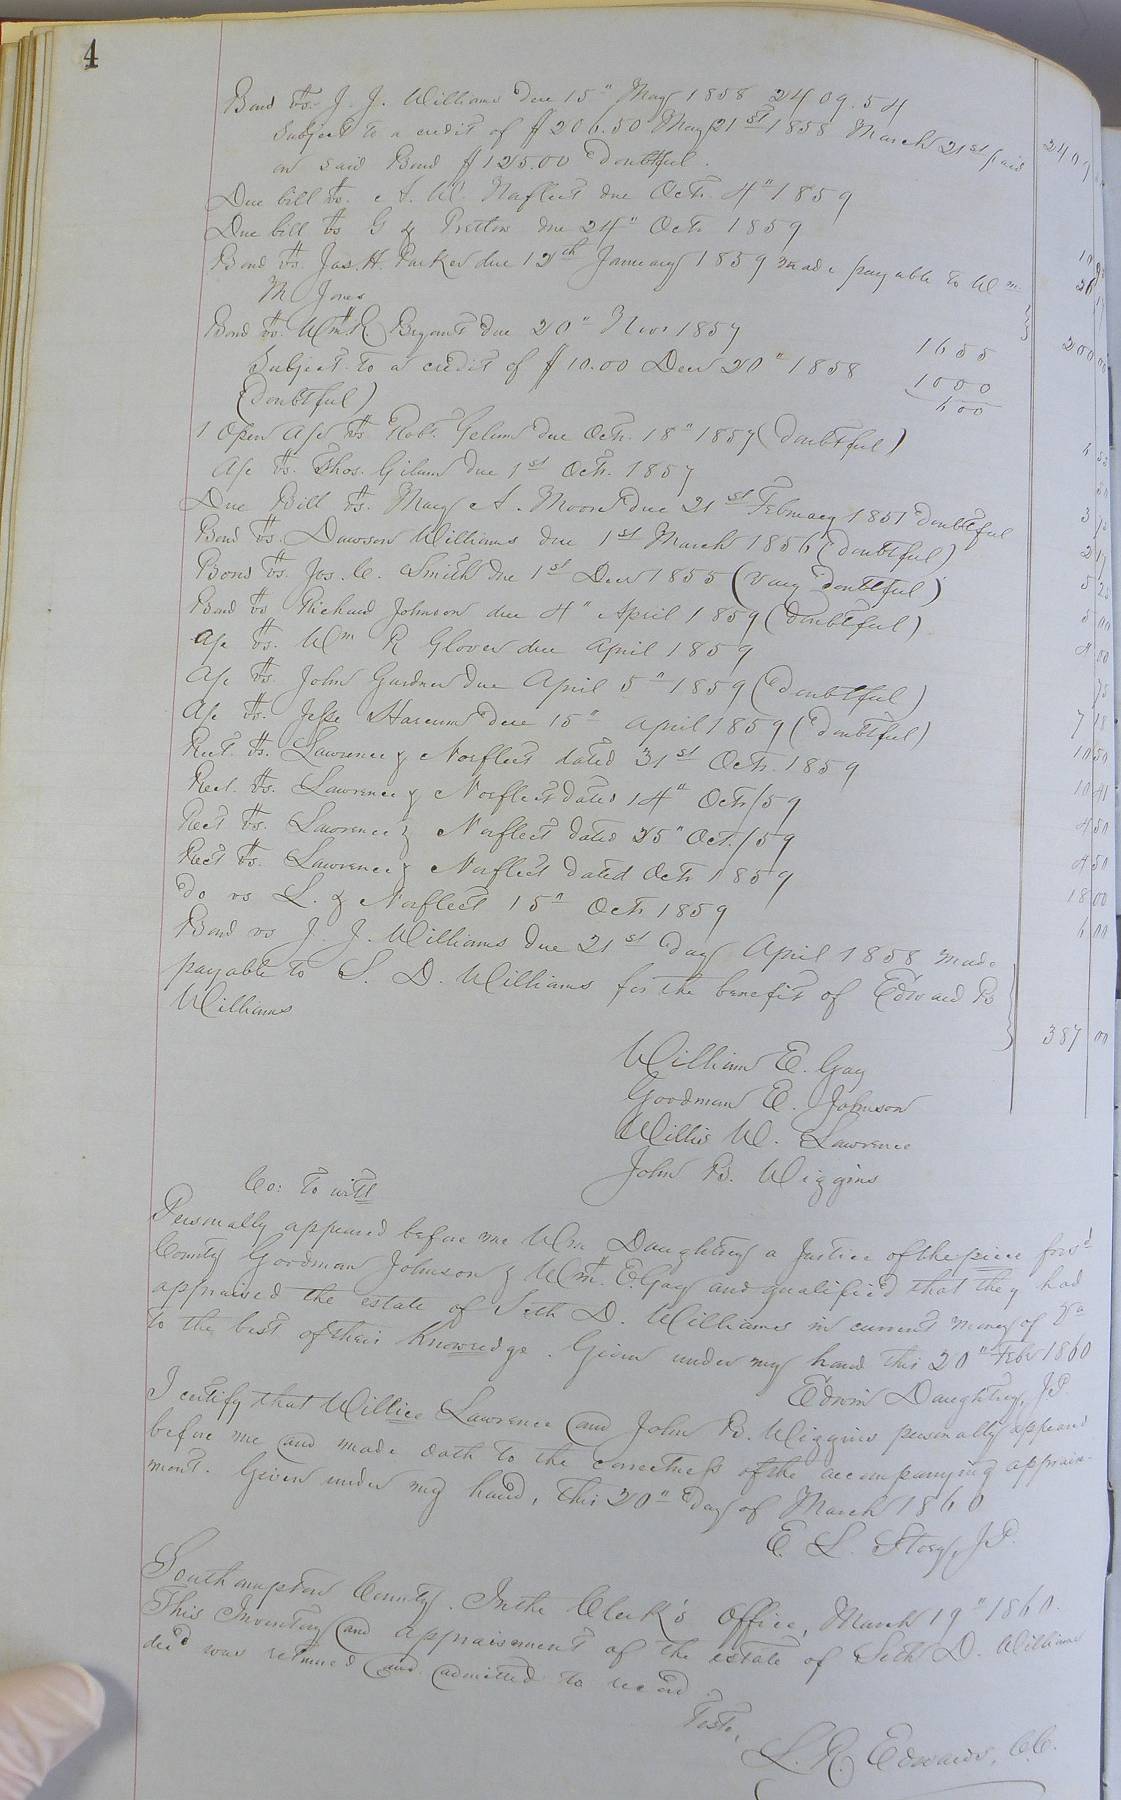 4
Bond vs. J. J. Williams due 15" May 1858 2409.54
Subject to a credit of $206.50 May 21st 1858 March 21st paid 2409
on said Bond $125.00 Doubtful.
Due bill vs. A. W. Norfleet due Octr 4" 1859
Due bill vs G & Pretlow due 24" Octr 1859
Bond vs. Jas. H. Parker due 12th January 1859 made payable to Wm
M Jones
Bond vs. Wm R Bryant due 20" Novr 1857 1655 200 00
Subject to a credit of $10.00 Decr 20" 1858 1000
(Doubtful) 600
1 Open A/c vs Robt. Gelum due Octr. 18" 1857 (Doubtful)
A/c vs. Thos. Gilum due 1st Octr. 1857
Due Bill vs. Mary A. Moore due 21st February 1851 doubtful
Bond vs. Dawson Williams due 1st March 1856 (Doubtful)
Bond vs. Jos. C. Smith due 1st Decr 1855 (Very Doubtful) 5 25
Bond vs Richard Johnson due 4" April 1859 (Doubtful) 5 00
A/c vs. Wm R Glover due April 1859 4 00
A/c vs. John Gardner due April 5" 1859 (Doubtful) 75
A/c vs. Jesse Harcum due 15" April 1859 (Doubtful) 7 18
Rect. vs. Lawrence & Norfleet dated 31st Octr. 1859 10 50
Rect. vs. Lawrence & Norfleet dated 14" Octr/59 10 41
Rect vs. Lawrence & Norfleet dated 25" Oct./59 4 50
Rect vs. Lawrence & Norfleet dated Octr 1859 4 50
Do vs L. & Norfleet 15" Octr 1859 18 00
Bond vs J. J. Williams due 21st day April 1858 made 6 00
payable to S. D. Williams for the benefit of Edward B
Williams 387 00
William E. Gay
Goodman E. Johnson
Willis W. Lawrence
John B. Wiggins
Co: to witt
Personally appeared before me Wm Daughtrey a Justice of the piece forsd
County Goodman Johnson & Wm. E. Gay and qualified that they had
appraised the estate of Seth D. Williams in current money of Va
to the best of their Knowredge. Given under my hand this 20" Febr 1860
Edwin Daughtrey, J.P.
I certify that Willice Lawrence and John B. Wiggins personally appeared
before me and made oath to the correctness of the accompanying appraise-
ment. Given under my hand, this 20" day of March 1860
E. L. Story, J.P.
Southampton County. In the Clerk's Office, March 19" 1860.
This Inventory and appraisement of the estate of Seth D. Williams
decd was returned and admitted to record.
Teste,
L. R. Edwards, C.C.